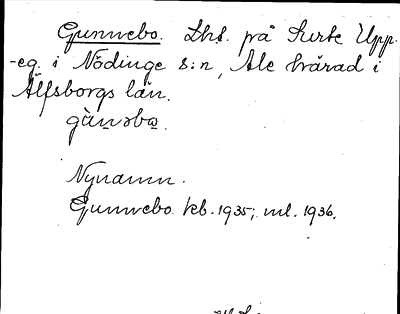 Gunnebo. Lhs. på Surte Upp-
-eg. i Nödinge s:n, Ale härad i
Älfsborgs län.
gu̇nəbo.
Nynamn.
Gunnebo kb. 1935; ml. 1936.